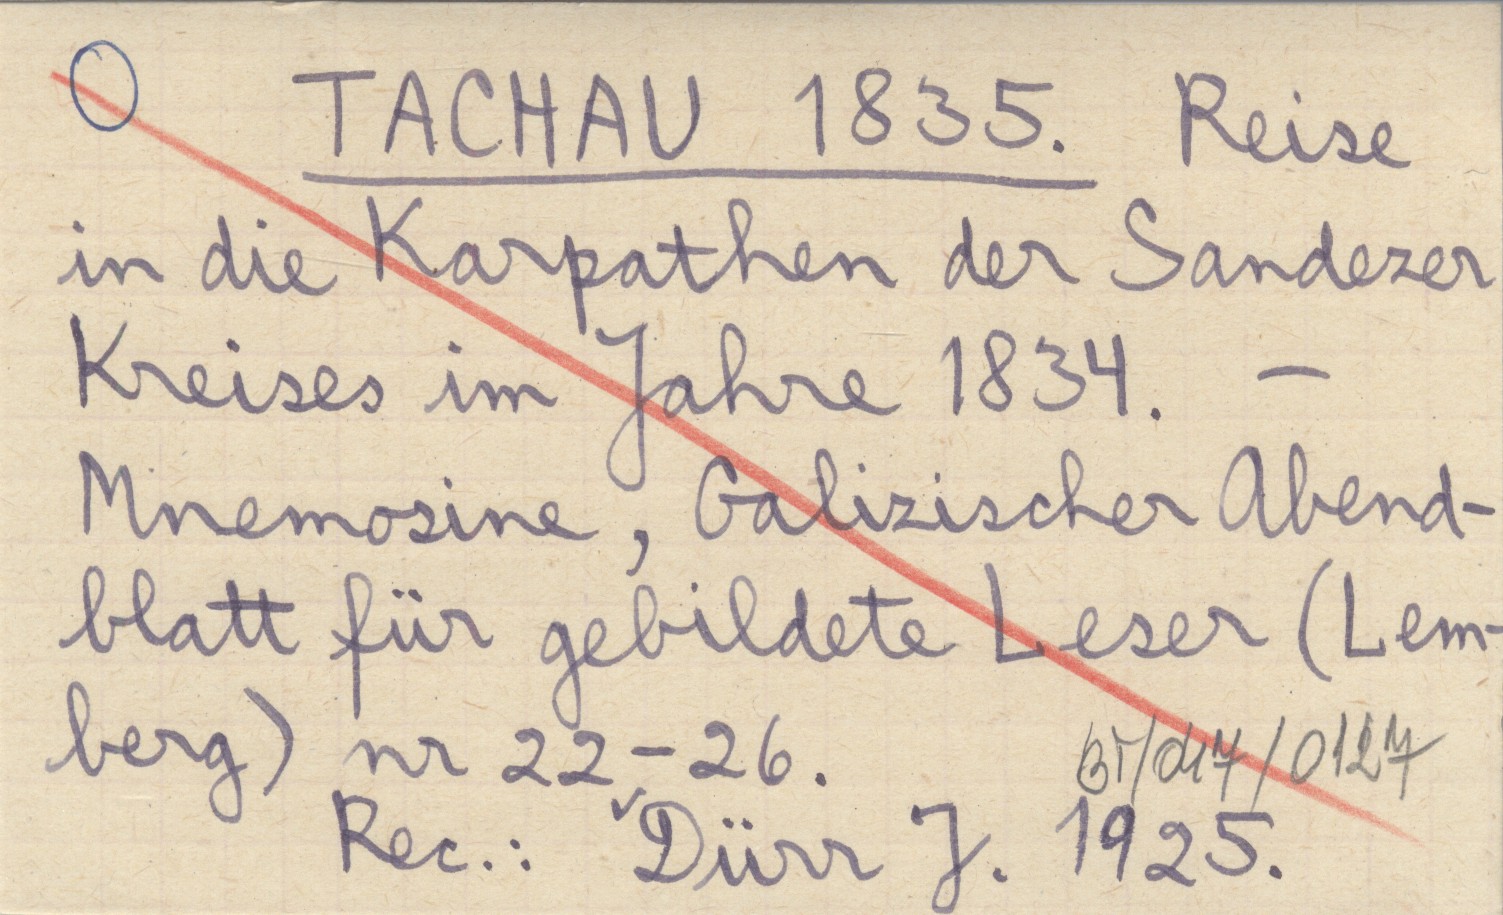 TACHAU 1835. Reise
in die Karpathen der Sandezer
Kreises im Jahre 1834. –
Mnemosine, Galizischer Abend-
blatt für gebildete Leser (Lem-
berg) nr 22–26.
Rec.: Dürr J. 1925.